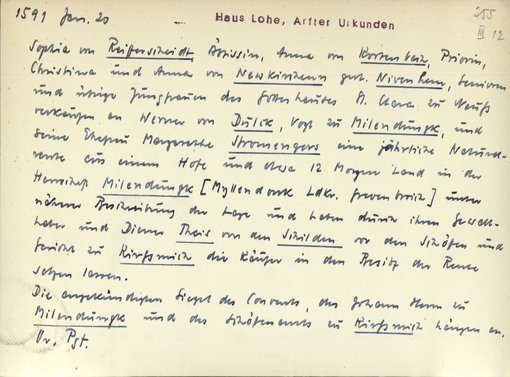 1591 Jan. 20 Haus Lohe, Arfter Urkunden 255
III 12
Sophia von Reifferscheidt, Äbtissin, Anna von Kortenbach, Priorin,
Christina und Anna von Newkirchenn gnt. Nivenhem, Senioren
und übrige Jungfrauen des Gotteshauses St. Clara zu Neuß
verkaufen an Werner von Dülck, Vogt zu Milendungk, und
seine Ehefrau Margarethe Stromengers eine jährliche Natural-
rente aus einem Hofe und etwa 12 Morgen Land in der
Herrschaft Milendungk [Myllendonk Ldkr. Grevenbroich] unter
näherer Beschreibung der Lage und haben durch ihren Gewalt-
haber und Diener Theis von den Schilden vor den Schöfen und
Gericht zu Kirssmich die Käufer in den Besitz der Rente
setzen lassen.
Die angekündigten Siegel des Convents, des Johann Horn zu
Milendungk und des Schöfenamts zu Kirssmich hängen an.
Or. Pgt.